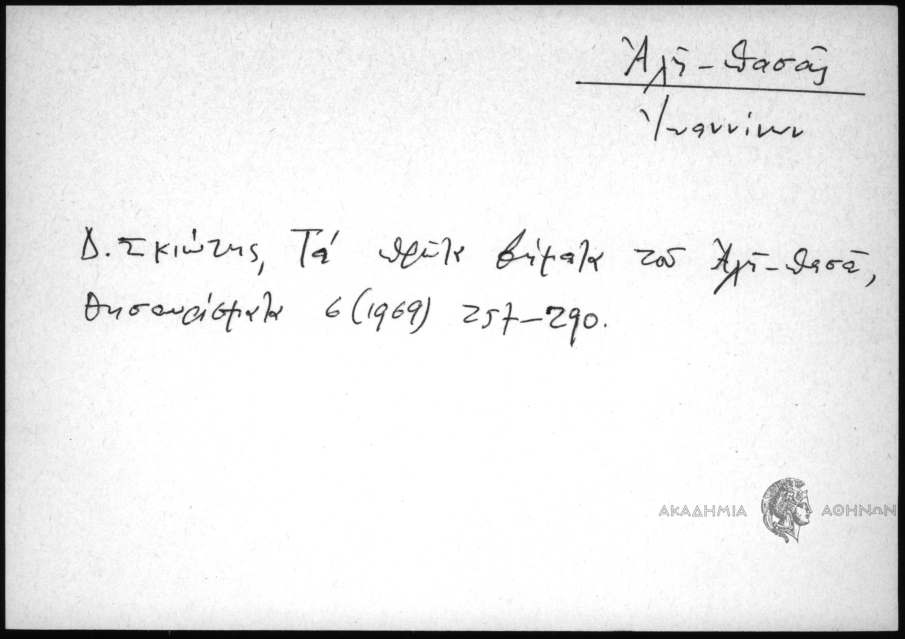 Ἀλῆ-Πασᾶς
Ἰωαννίνων
Δ. Σκιώτης, Τά πρῶτα βήματα τοῦ Ἀλῆ-Πασᾶ,
Θησαυρίσματα 6 (1969) 257-290.
ΑΚΑΔΗΜΙΑ ΑΘΗΝΩΝ